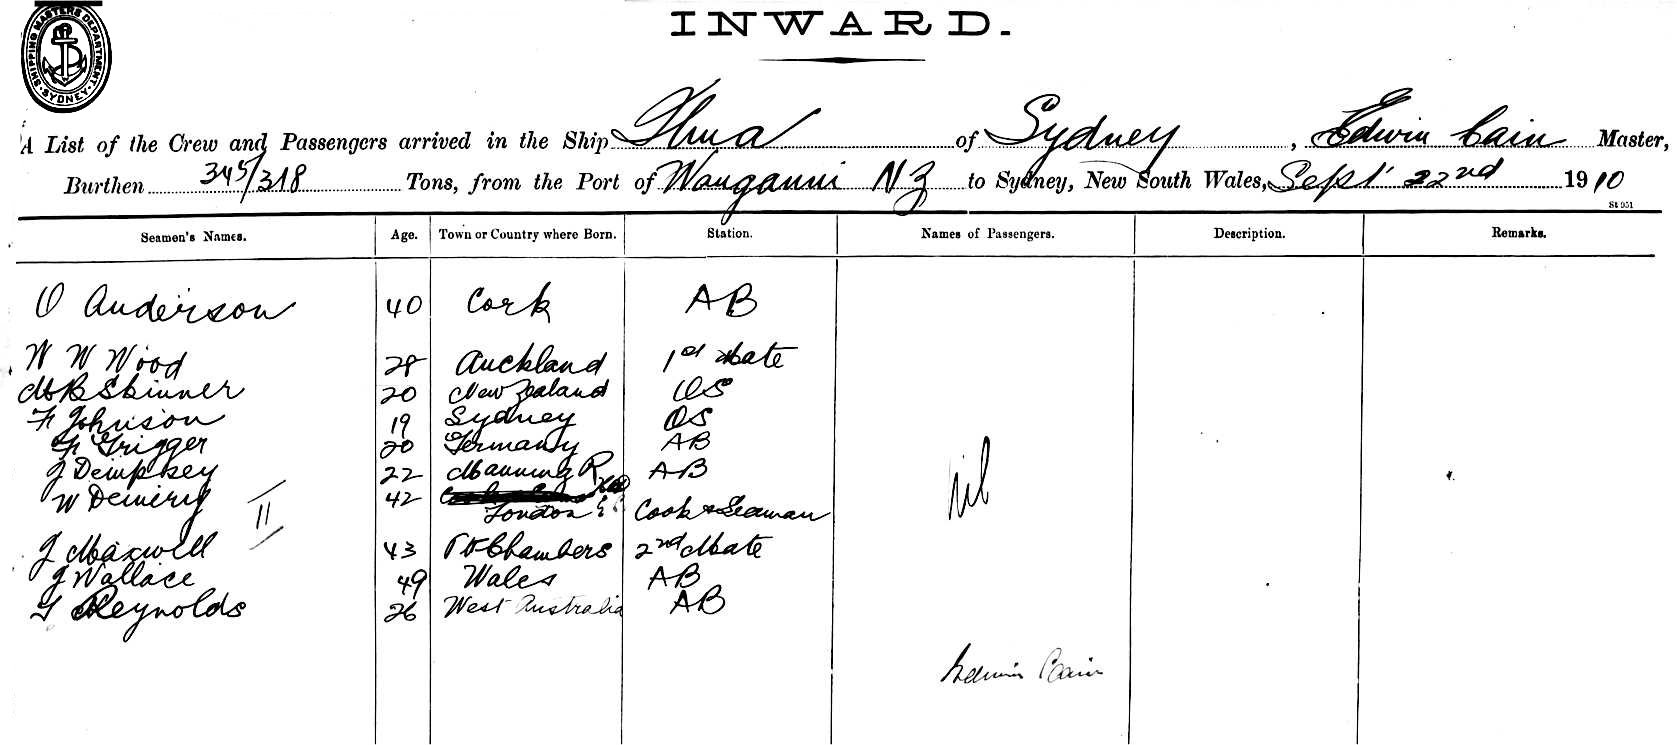 INWARD.
SHIPPING MASTERS DEPARTMENT SYDNEY
A List of the Crew and Passengers arrived in the Ship Ilma of Sydney, Edwin Cain Master,
Burthen 345/318 Tons, from the Port of Wanganui NZ to Sydney, New South Wales, Sept 22nd 1910
St 951
Seamen's Names. Age. Town or Country where Born. Station. Names of Passengers. Description. Remarks.
O Anderson 40 Cork AB
W W Wood 28 Auckland 1st Mate
B Skinner 20 New Zealand OS
F Johnson 19 Sydney OS
F Grigger 20 Germany AB
J Dempsey 22 Manning R AB
W 42
London Cook & Seaman
11
nil
J Maxwell 43 Pt Chambers 2nd Mate
J Wallace 49 Wales AB
Reynolds 26 West Australia AB
Edwin Cain